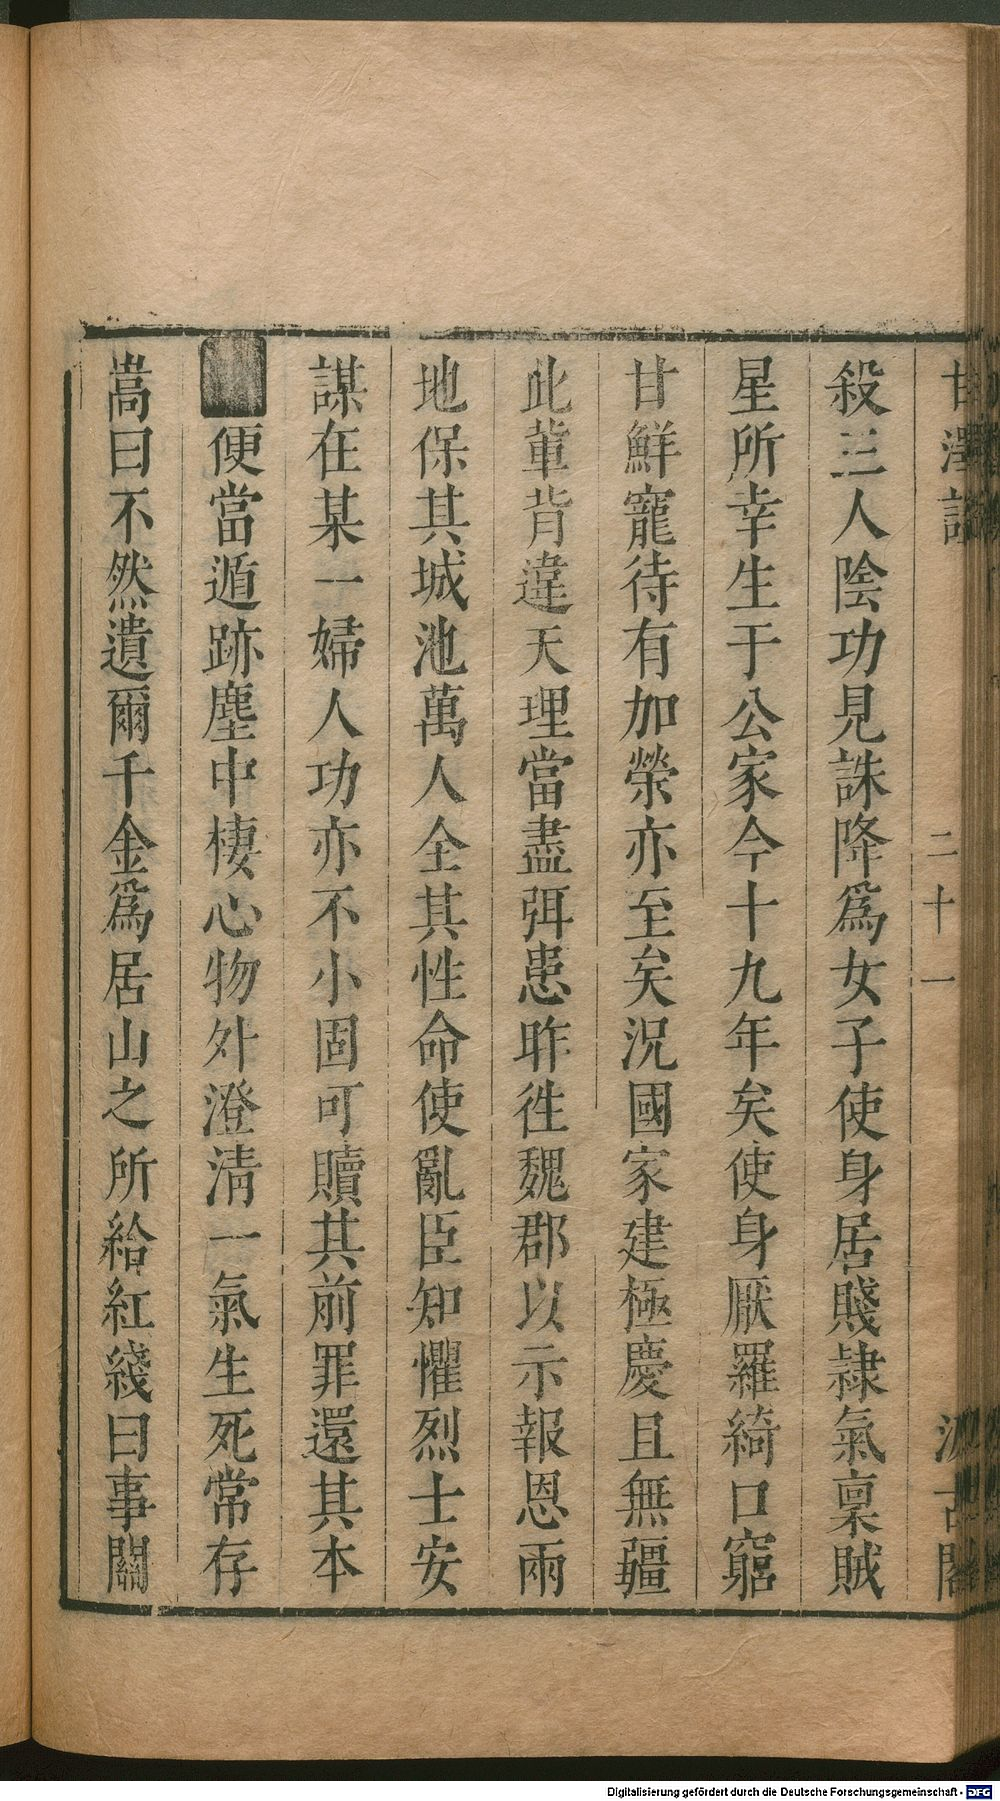 甘澤謠 二十一 汲古閣
殺三人陰功見誅降爲女子使身居賤隷氣稟賊
星所幸生于公家今十九年矣使身厭羅綺口窮
甘鮮寵待有加榮亦至矣況國家建極慶且無疆
此輩背違天理當盡弭患昨徃魏郡以示報恩兩
地保其城池萬人全其性命使亂臣知懼烈士安
謀在某一婦人功亦不小固可贖其前罪還其本
便當遁跡塵中棲心物外澄清一氣生死常存
嵩曰不然遺爾千金爲居山之所給紅綫曰事關
Digitalisierung gefördert durch die Deutsche Forschungsgemeinschaft - DFG